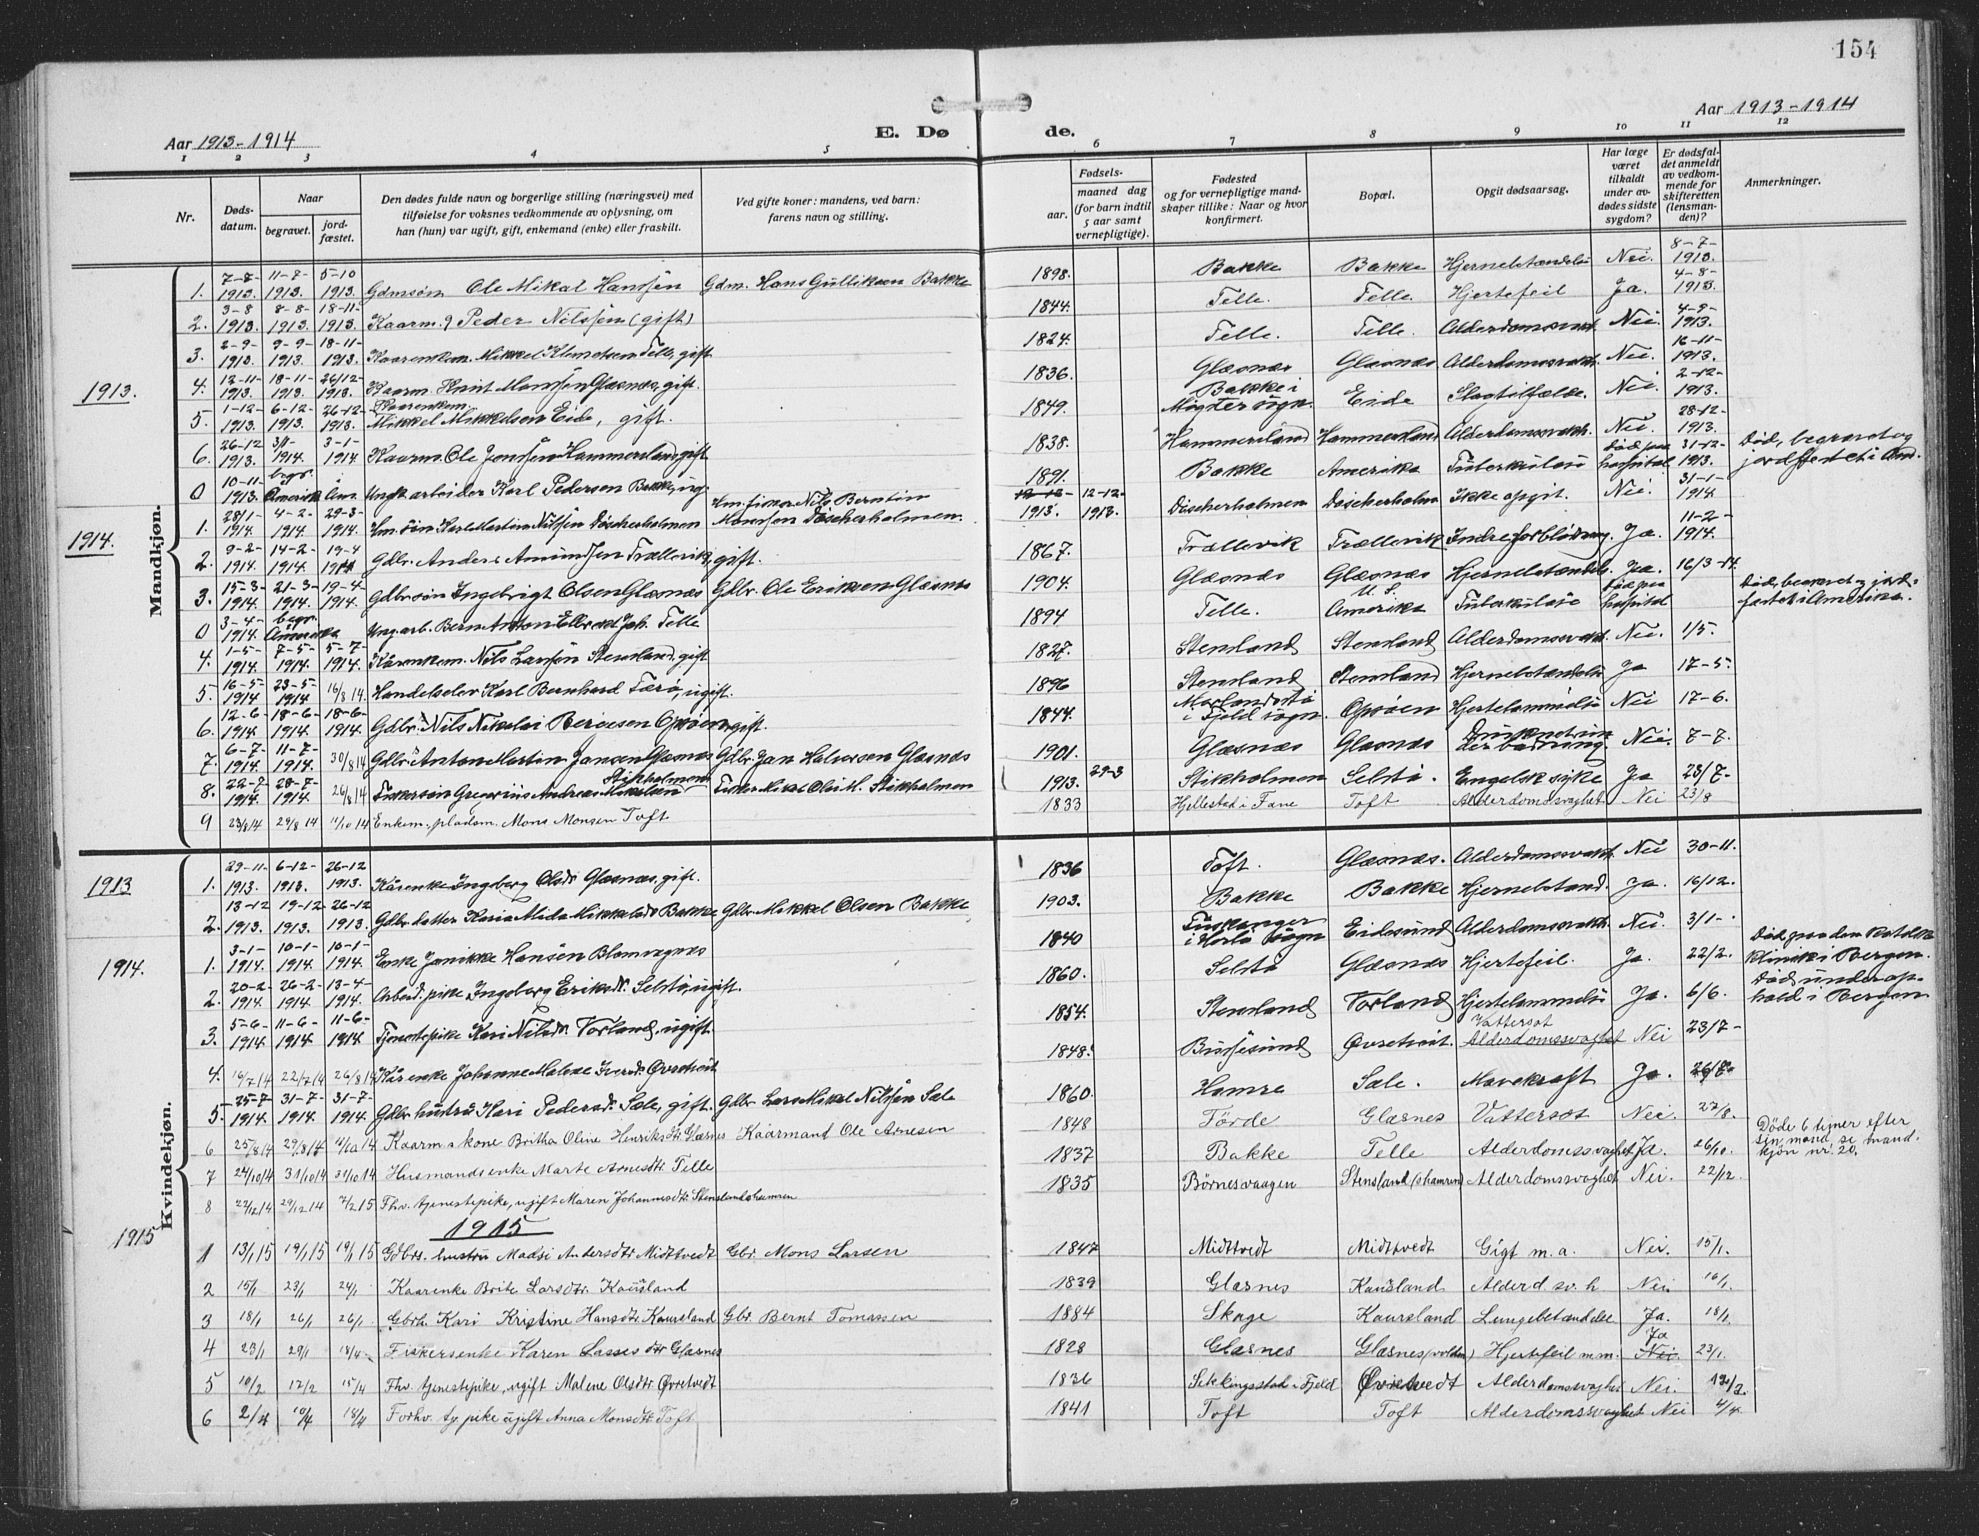 154
Aar 1913-1914
E. Dø
de.
Aar 1913-1914
1 2 3 4 5 6 7 8 9 10 11 12
Nr.
Døds-
datum.
Naar
begravet.
jord-
fæstet.
Den dødes fulde navn og borgerlige stilling (næringsvei) med
tilføielse for voksnes vedkommende av oplysning, om
han (hun) var ugift, gift, enkemand (enke) eller fraskilt.
Ved gifte koner: mandens, ved barn:
farens navn og stilling.
Fødsels-
aar.
maaned dag
(for barn indtil
5 aar samt
vernepligtige).
Fødested
og for vernepligtige mand-
skaper tillike: Naar og hvor
konfirmert.
Bopæl.
Opgit dødsaarsag.
Har læge
været
tilkaldt
under av-
dødes sidste
sygdom?
Er dødsfal-
det anmeldt
av vedkom-
mende for
skifteretten
(lensman-
den)?
Anmerkninger.
Mandkjøn.
1913.
1. 7-7-1913. 11-7-1913. 5-10 1913. Gdmsøn Ole Mikal Hanssen Gdm. Hans Gulliksen Bakke 1898. Bakke Bakke Nei. 8-7-1913.
2. 3-8 1913. 8-8-1913. 18-11-1913. Kaarm. Peder Nilssen (gift) 1844. Telle. Telle. Hjertefeil Ja. 4-8-1913.
3. 2-9-1913. 9-9-1913. 18-11-1913. Mikkel Telle, gift 1824. Telle. Telle. Nei. 4-9-1913.
4. 12-11-1913. 18-11-1913. 26/12-1913. Kaarm. Knut Monssen Glæsnæs, gift. 1836. Glæsnæs Glæsnæs Nei. 16-11-1913.
5. 1-12-1913. 6-12-1913. 26-12-1913. Kaarenkem. Mikkel Mikkelsen Eide, gift. 1849. Bakke i Møgster sogn. Eide Slagtilfælde. Nei. 2-12-1913.
6. 26-12 1913. 3/1-1914. 3-1-1914 Kaarm. Ole Jenssen Hammersland gift 1838. Hammersland Hammersland Nei. 28-12-1913.
0 10-11-1913. begr. Amerika i Am. Ungkt arbeider Karl Pedersen Bakke, ug. 1891. Bakke Amerika Tuberkuløse Død paa hospital 31-12-1913. Død, begravet og jordfæstet i Am.
1914.
1. 28/1-1914. 4-2-1914. 29-3-1914. Hm. søn Karl Martin Nilssen Døscherholmen Hm. fisker Nils Berntin Monssen Døscherholmen. 1913. 12-12-1913. Døscherholmen Døscherholm Ikke opgit. Nei. 31-1-1914.
2. 9-2-1914. 14-2-1914. 19-4 1914 Gdbr. Anders Amundsen Trællevik, gift. 1867. Trællevik Trællevik Indre forblødning. Ja. 11-2-1914.
3. 15-3-1914. 21-3-1914. 19-4-1914. Gdbrsøn Ingebrigt Olsen Glæsnæs Gdbr. Ole Eriksen Glæsnæs 1904. Glæsnæs Glæsnæs Ja. 16/3-14
0 3-4-1914. begr. Amerika Ung arb. Bern Anton Joh. Telle 1894 Telle. U. S. Amerika Tuberkuløse Død paa hospital Død, begravet og jord-fæstet i Amerika.
4. 1-5-1914. 7-5-1914. 5-7-1914. Kårenkem. Nils Larssøn Stensland, gift 1827. Stensland Stensland Nei. 1/5.
5. 16-5-1914 23-5-1914 16/8 14. Handelselev Karl Bernhard Tærø, ugift. 1896 Stensland Stensland Ja 17-5.
6. 12-6 1914 18-6-1914 18-6-1914. Gdbr. Nils Nikolai Bergesen Opsøen, gift. 1844. i Fjeld sogn. Opsøen Nei 17-6.
7. 6-7-1914. 11-7-1914. 30/8 14 Gdbr. Anton Martin Jansen Glæsnæs Gdbr. Jan Halvorsen Glæsnæs 1901. Glæsnæs Glæsnæs Nei. 7-7.
8. 22-7-1914. 28-7-1914. 26/8 14 Fiskersøn Gregorius Andreas Mikalsen Stikholmen Stikholmen 1913. 29-3 Stikholmen Selstø. Engelsk syke Ja 23/7-
9 23/8 14 29/8 14 11/10 14 Enkem. pladsm. Mons Monsen Toft 1833 Hjellestad i Fane Toft Alderdomssvaghet Nei 23/8
Kvindekjøn.
1913
1. 29-11-1913. 6-12-1913. 26-12 1913. Kårenke Ingeborg Olsdr Glæsnæs, gift. 1836 Toft. Glæsnæs. Nei 30-11.
2. 13-12 1913. 19-12 1913. 26-12 1913. Gdbr. datter Mikkelsdr Bakke Gdbr. Mikkel Olsen Bakke 1903. Bakke Bakke Ja. 16/12.
1914.
1. 3-1-1914. 10-1-1914. 10-1-1914. Enke Janikke Hansen Blomvægnes 1840 i Herlø sogn Eidesund Nei. 3/1-
2. 20-2-1914. 26-2-1914. 13-4-1914. Arbeid. pike Ingeborg Eriksdr. Selstø, ugift. 1860. Selstø Glæsnæs Hjertefeil. Ja. 22/2. Død paa den klinik i Bergen.
3. 5-6-1914. 11-6-1914. 11-6-1914 Tjenestepike Kari Nilsdr. Torland, ugift. 1854. Stensland Torland Ja. 6/6. Død under op-hold i Bergen
4. 16/7 14 22/7 14 26/8 14 Kårenke Johanne Malene Iversdr. Øvretveit 1848. Øvretveit. Vattersot Alderdomssvaghet Nei 23/7-
5. 25-7 1914. 31-7-1914. 31-7-1914 Gdbr. hustru Kari Pedersdr. Sæle, gift. Gdbr. Lars Mikal Nilssen Sæle 1860. Hamre Sæle. Mavekræft Ja. 26/7
6 25/8 14 29/8 14 11/10 14 Kaarm.s kone Britha Oline Henriksdtr. Glæsnes Kaarmand Ole Arnesen 1848 Førde Glæsnes Vattersot Nei. 27/8. Døde 6 timer efter sin mand, se mand-kjøn nr. 20.
7 24/10 14 31/10 14 31/10 14 Husmandsenke Marte Arnesdtr. Telle 1837 Bakke Telle Alderdomssvaghet Ja. 26/10.
8 22/12 14 29/12 14 7/2 15 Fhv. tjenestepike, ugift Maren Johannesdtr. Stenslandshamren 1835 Børnesvaagen Stensland (hamren) Alderdomssvaghet Nei. 22/12.
1915
1915
1 13/1 15 19/1 15 19/1 15 Gdbrs. hustru Madsi Andersdtr. Midttvedt Gbr. Mons Larsen 1847 Midttvedt Midttvedt Gigt m. a. Nei. 15/1.
2 15/1 23/1 24/1 Kaarenke Brite Larsdtr. Kausland 1839 Glæsnes Kausland Alderd sv. h Nei. 16/1.
3 18/1 26/1 26/1 Gbrh. Kari Kristine Hansdtr. Kausland Gbr. Bernt Tomassen 1884 Skoge Kausland Lungebetændelse Ja. 18/1.
4 23/1 29/1 18/4 Fiskersenke Karen Lassesdtr Glæsnes 1828 Glæsnes Glæsnes (volden) Hjertefeil m.m. Ja Nei. 23/1.
5 10/2 17/2 15/4 Fhv. tjenestepike, ugift Malene Olsdtr. Øvretvedt 1836 Sekkingsstad i Fjeld Øvretvedt Alderdomssvaghet Nei. 13/2.
6 2/4 10/4 18/4 Forhv. tj. pike ugift Anna Monsdtr. Toft 1841 Toft Toft Alderdomssvaghet Nei 4/4.